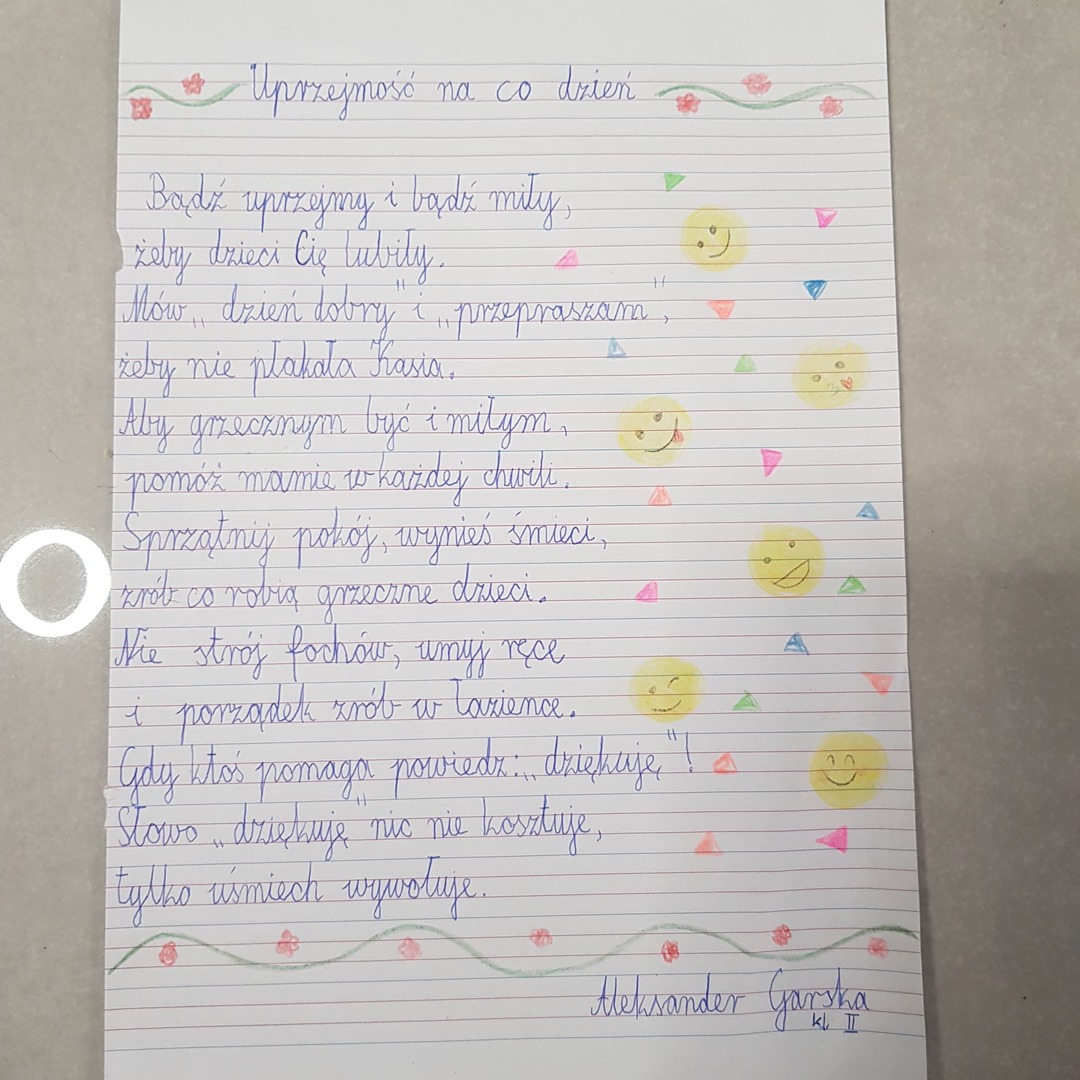 Uprzejmość na co dzień
Bądź uprzejmy i bądź miły,
żeby dzieci Cię lubiły.
Mów „dzień dobry" i „przepraszam",
żeby nie płakała Kasia.
Aby grzecznym być i miłym,
pomóż mamie w każdej chwili.
Sprzątnij pokój, wynieś śmieci,
zrób co robią grzeczne dzieci.
Nie strój fochów, umyj ręce
i porządek zrób w łazience.
Gdy ktoś pomaga powiedz: „dziękuję"!
Słowo „dziękuję" nic nie kosztuje,
tylko uśmiech wywołuje.
Aleksander Garska
kl II